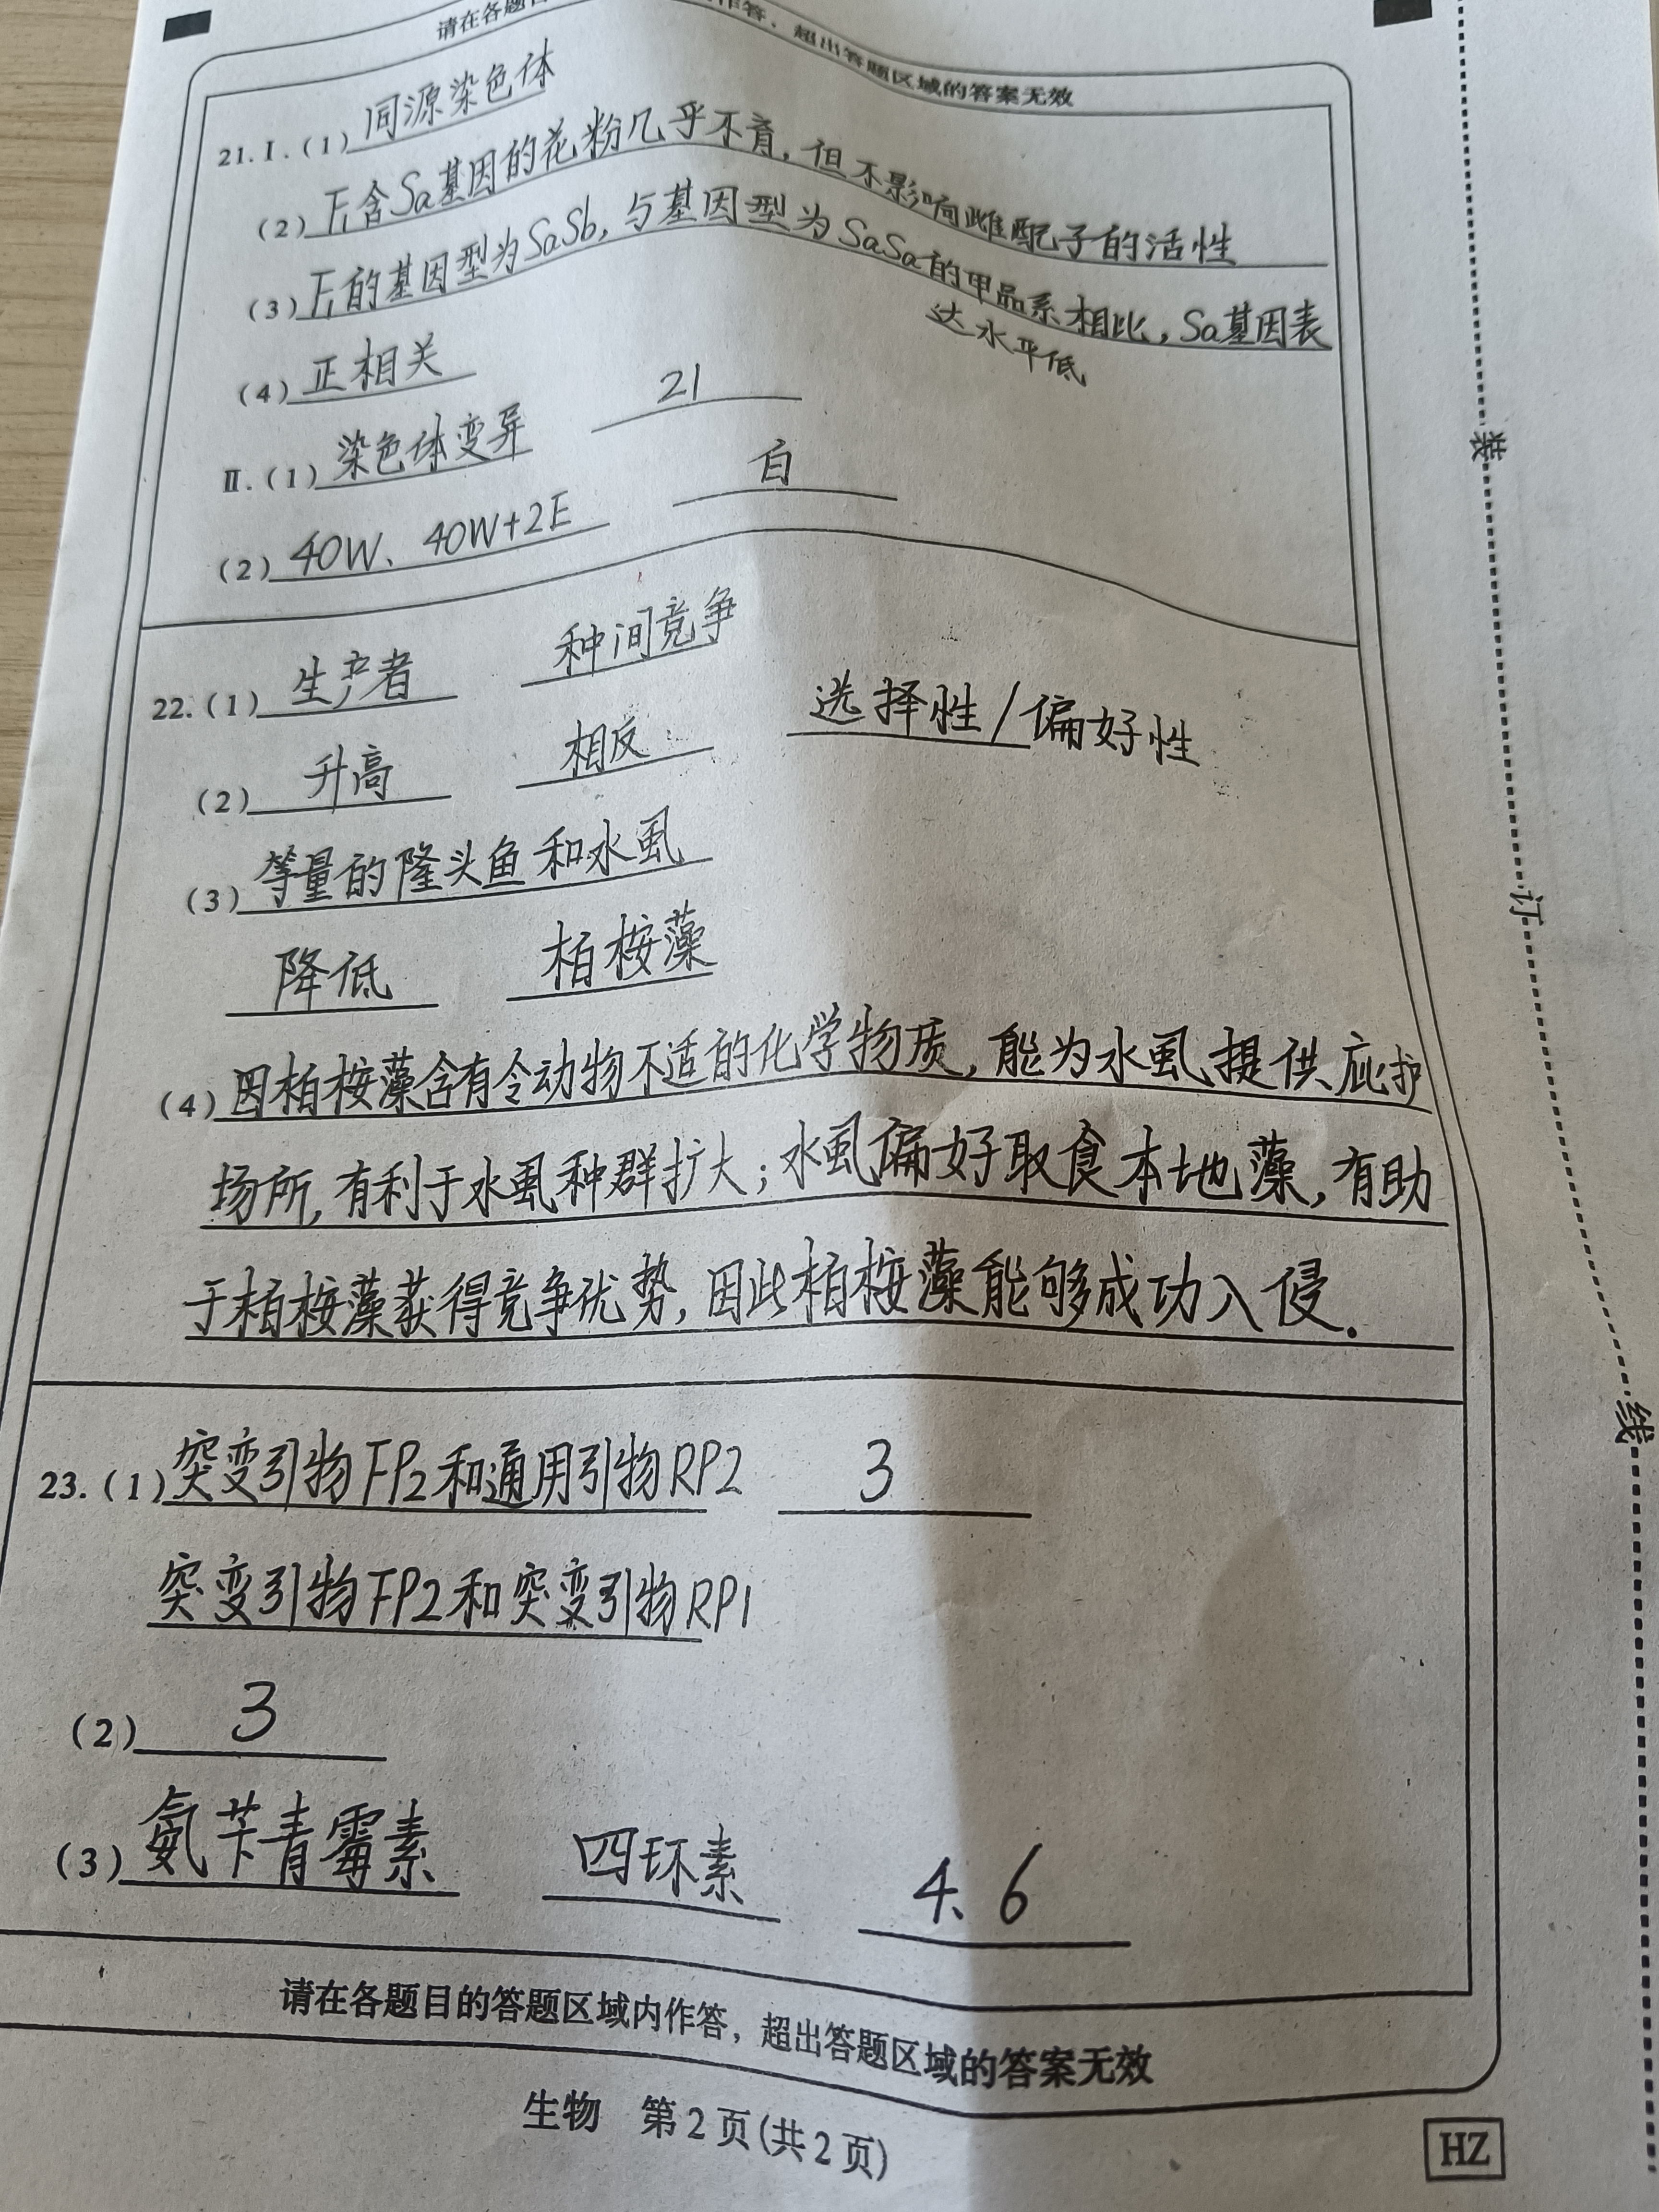 请在各题目
作答，超出答题区域的答案无效
21.Ⅰ.(1) 同源染色体
(2) F₁含Sa基因的花粉几乎不育，但不影响雌配子的活性
(3) F₁的基因型为SaSb，与基因型为SaSa的甲品系相比，Sa基因表
达水平低
(4) 正相关
Ⅱ.(1) 染色体变异 21
(2) 40W、40W+2E 白
22.(1) 生产者 种间竞争
(2) 升高 相反 选择性/偏好性
(3) 等量的隆头鱼和水虱
降低 柏桉藻
(4) 因柏桉藻含有令动物不适的化学物质，能为水虱提供庇护
场所，有利于水虱种群扩大；水虱偏好取食本地藻，有助
于柏桉藻获得竞争优势，因此柏桉藻能够成功入侵.
23.(1) 突变引物FP2和通用引物RP2 3
突变引物FP2和突变引物RP1
(2) 3
(3) 氨苄青霉素 四环素 4、6
请在各题目的答题区域内作答，超出答题区域的答案无效
生物 第2页(共2页)
HZ
装
订
线